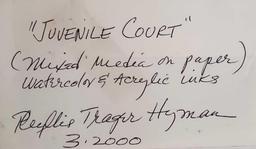 "JUVENILE COURT"
(Mixed Media on paper)
Watercolor & Acrylic inks
Phyllis Trager Hyman
3.2000